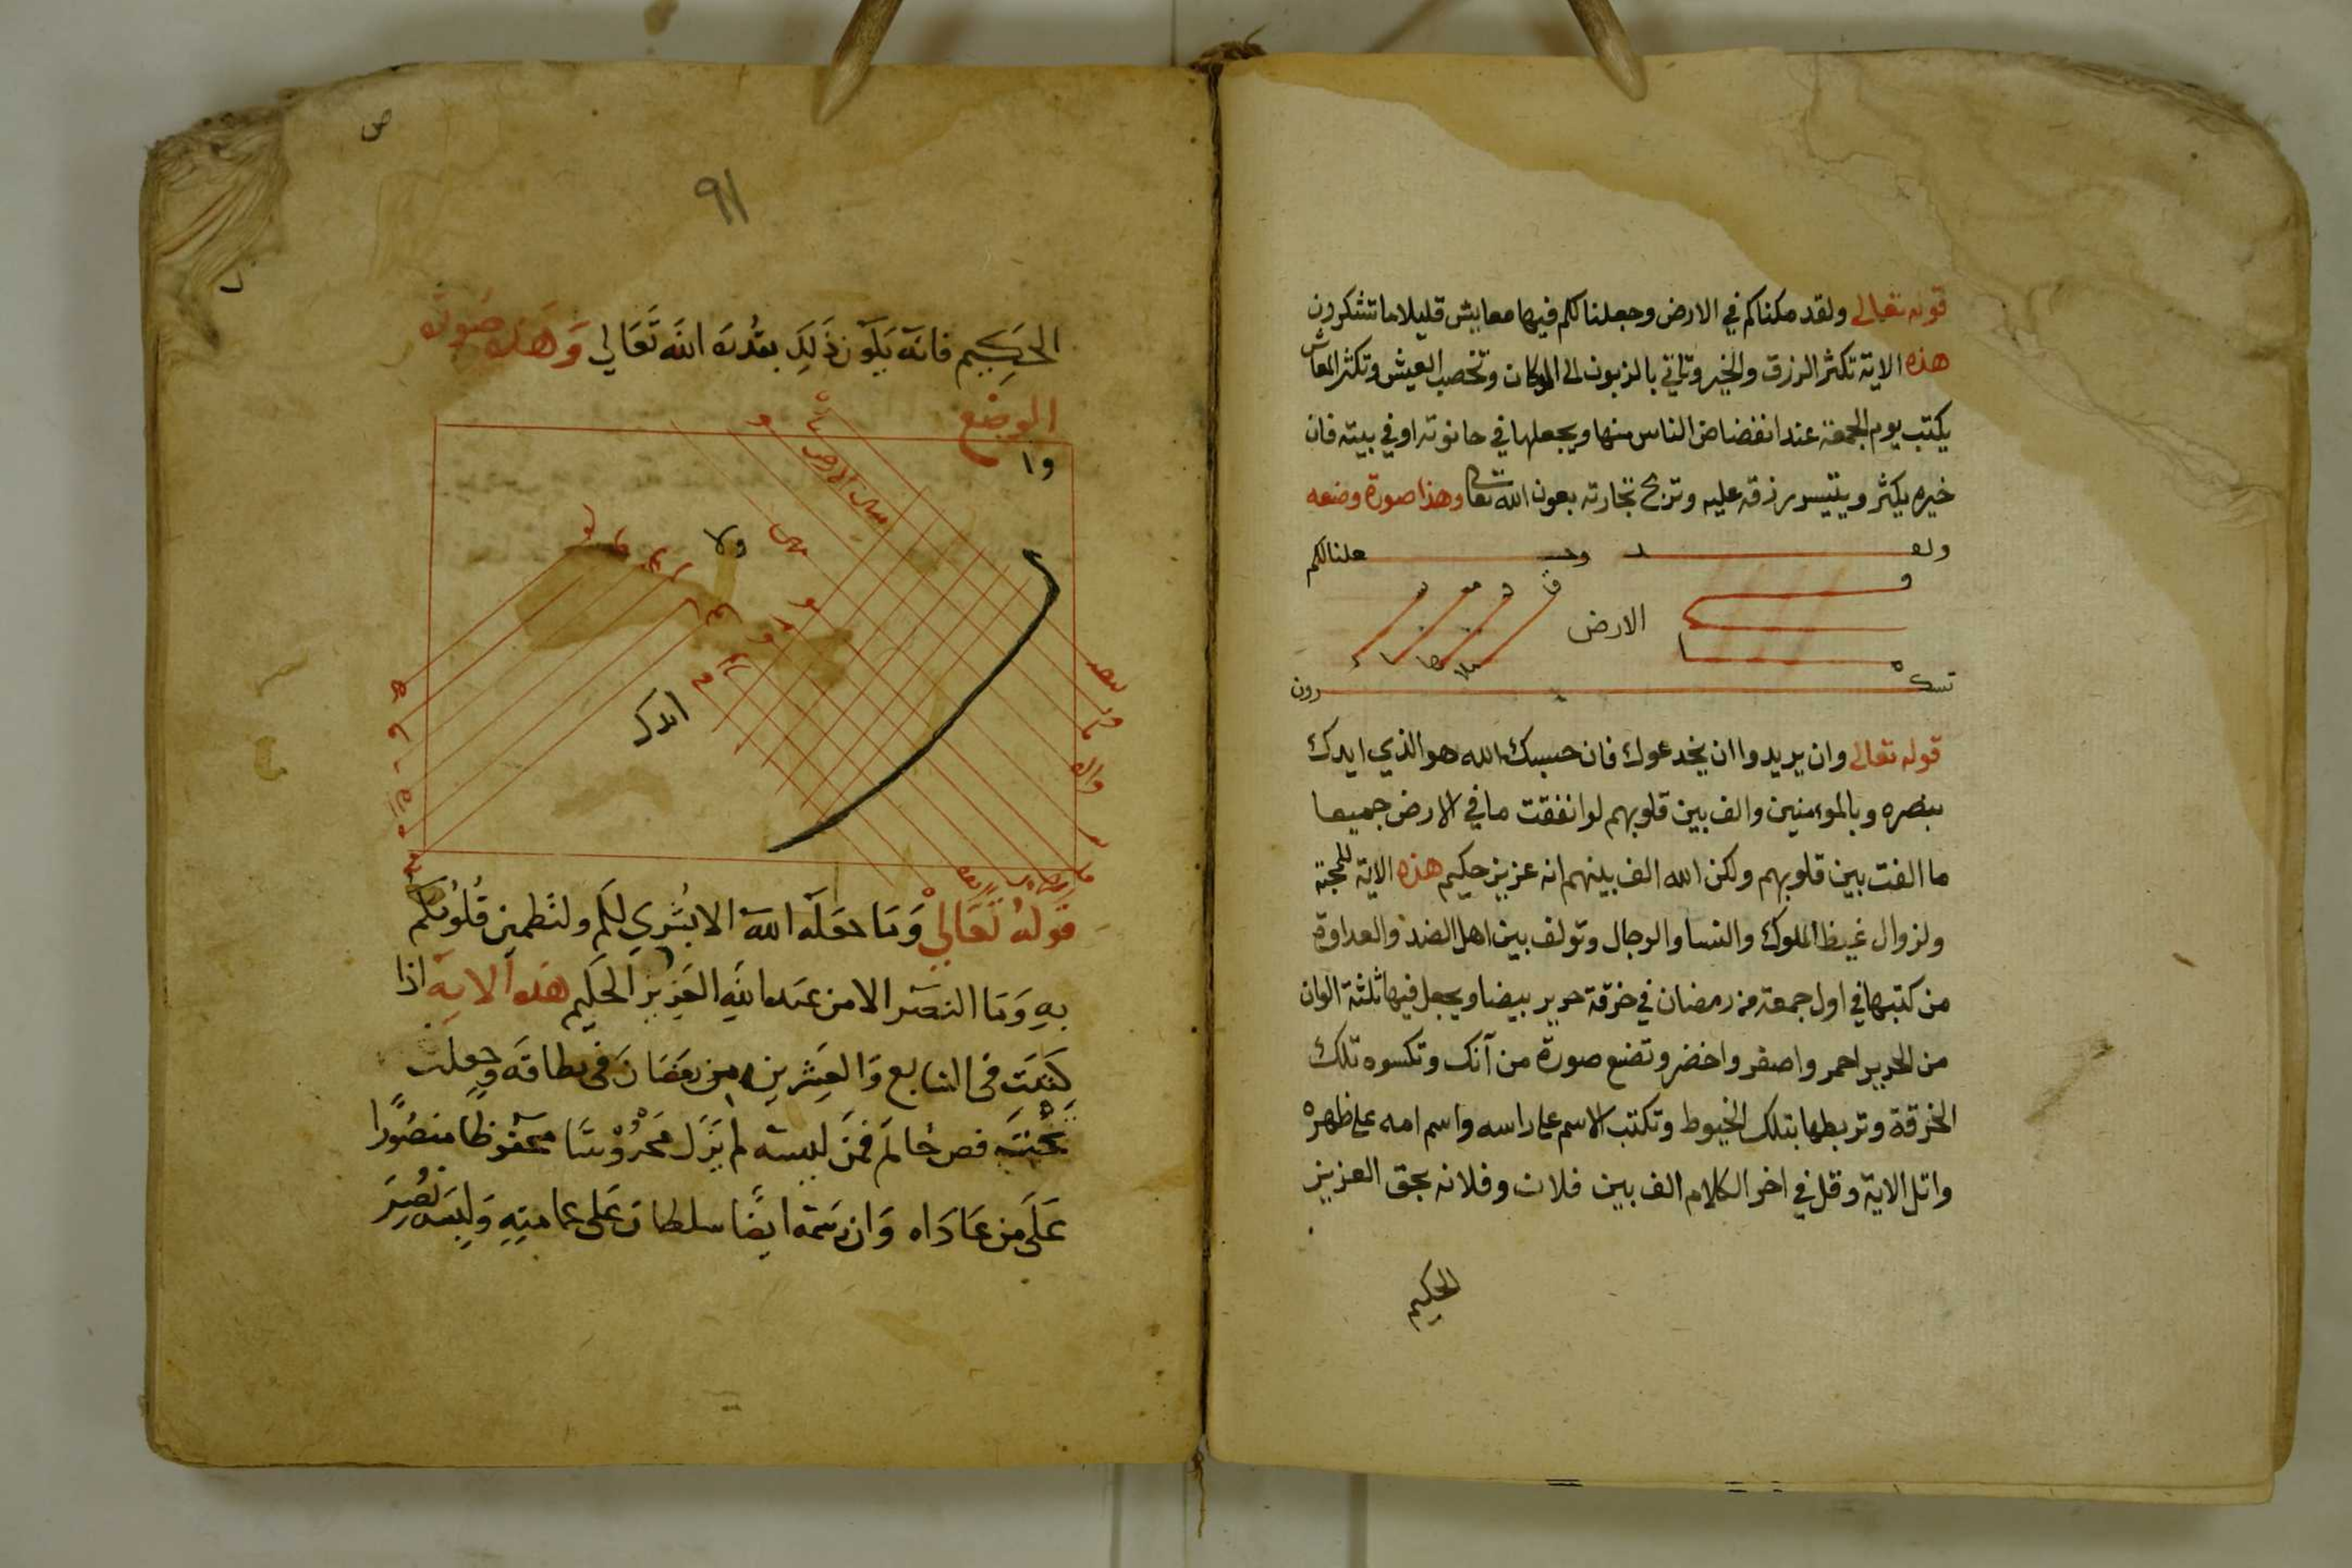 قوله تعالى ولقد مكناكم في الارض وجعلنا لكم فيها معايش قليلا ما تشكرون
هذه الاية تكثر الرزق والخير وتاتي بالزبون الى المكان وتخصب العيش وتكثر المعاش
يكتب يوم الجمعة عند انفضاض الناس منها ويجعلها في حانوته او في بيته فان
خيره يكثر ويتيسر رزقه عليه وتربح تجارته بعون الله تعالى وهذا صورة وضعه
ولقد وجـ علنا لكم
الارض
تشكـ رون
قوله تعالى وان يريدوا ان يخدعوك فان حسبك الله هو الذي ايدك
بنصره وبالمومنين والف بين قلوبهم لو انفقت ما في الارض جميعا
ما الفت بين قلوبهم ولكن الله الف بينهم انه عزيز حكيم هذه الاية للمحبة
ولزوال غيظ الملوك والنسا والرجال وتولف بين اهل الضد والعداوة
من كتبها في اول جمعة من رمضان في خرقة حرير بيضا ويجعل فيها ثلثة الوان
من الحرير احمر واصفر واخضر وتضع صورة من آنك وتكسوه تلك
الخرقة وتربطها بتلك الخيوط وتكتب الاسم على راسه واسم امه على ظهره
واتل الاية وقل في اخر الكلام الف بين فلان وفلانه بحق العزيز
الحكيم
ص
٩١
الحكيم فانه يكون ذلك بقدرة الله تعالي وهذه صورة
الوضع
وا
ولا
قوله تعالي وما جعله الله الا بشري لكم ولتطمين قلوبكم
به وما النصر الا من عند الله العزيز الحكيم هذه الاية اذا
كتبت في السابع والعشرين من رمضان في بطاقة وجعلت
تحت فص خاتم فمن لبسه لم يزل محروسا محفوظا منصورا
على من عاداه وان رسمه ايضا سلطان على عمامته ولبسه نصر